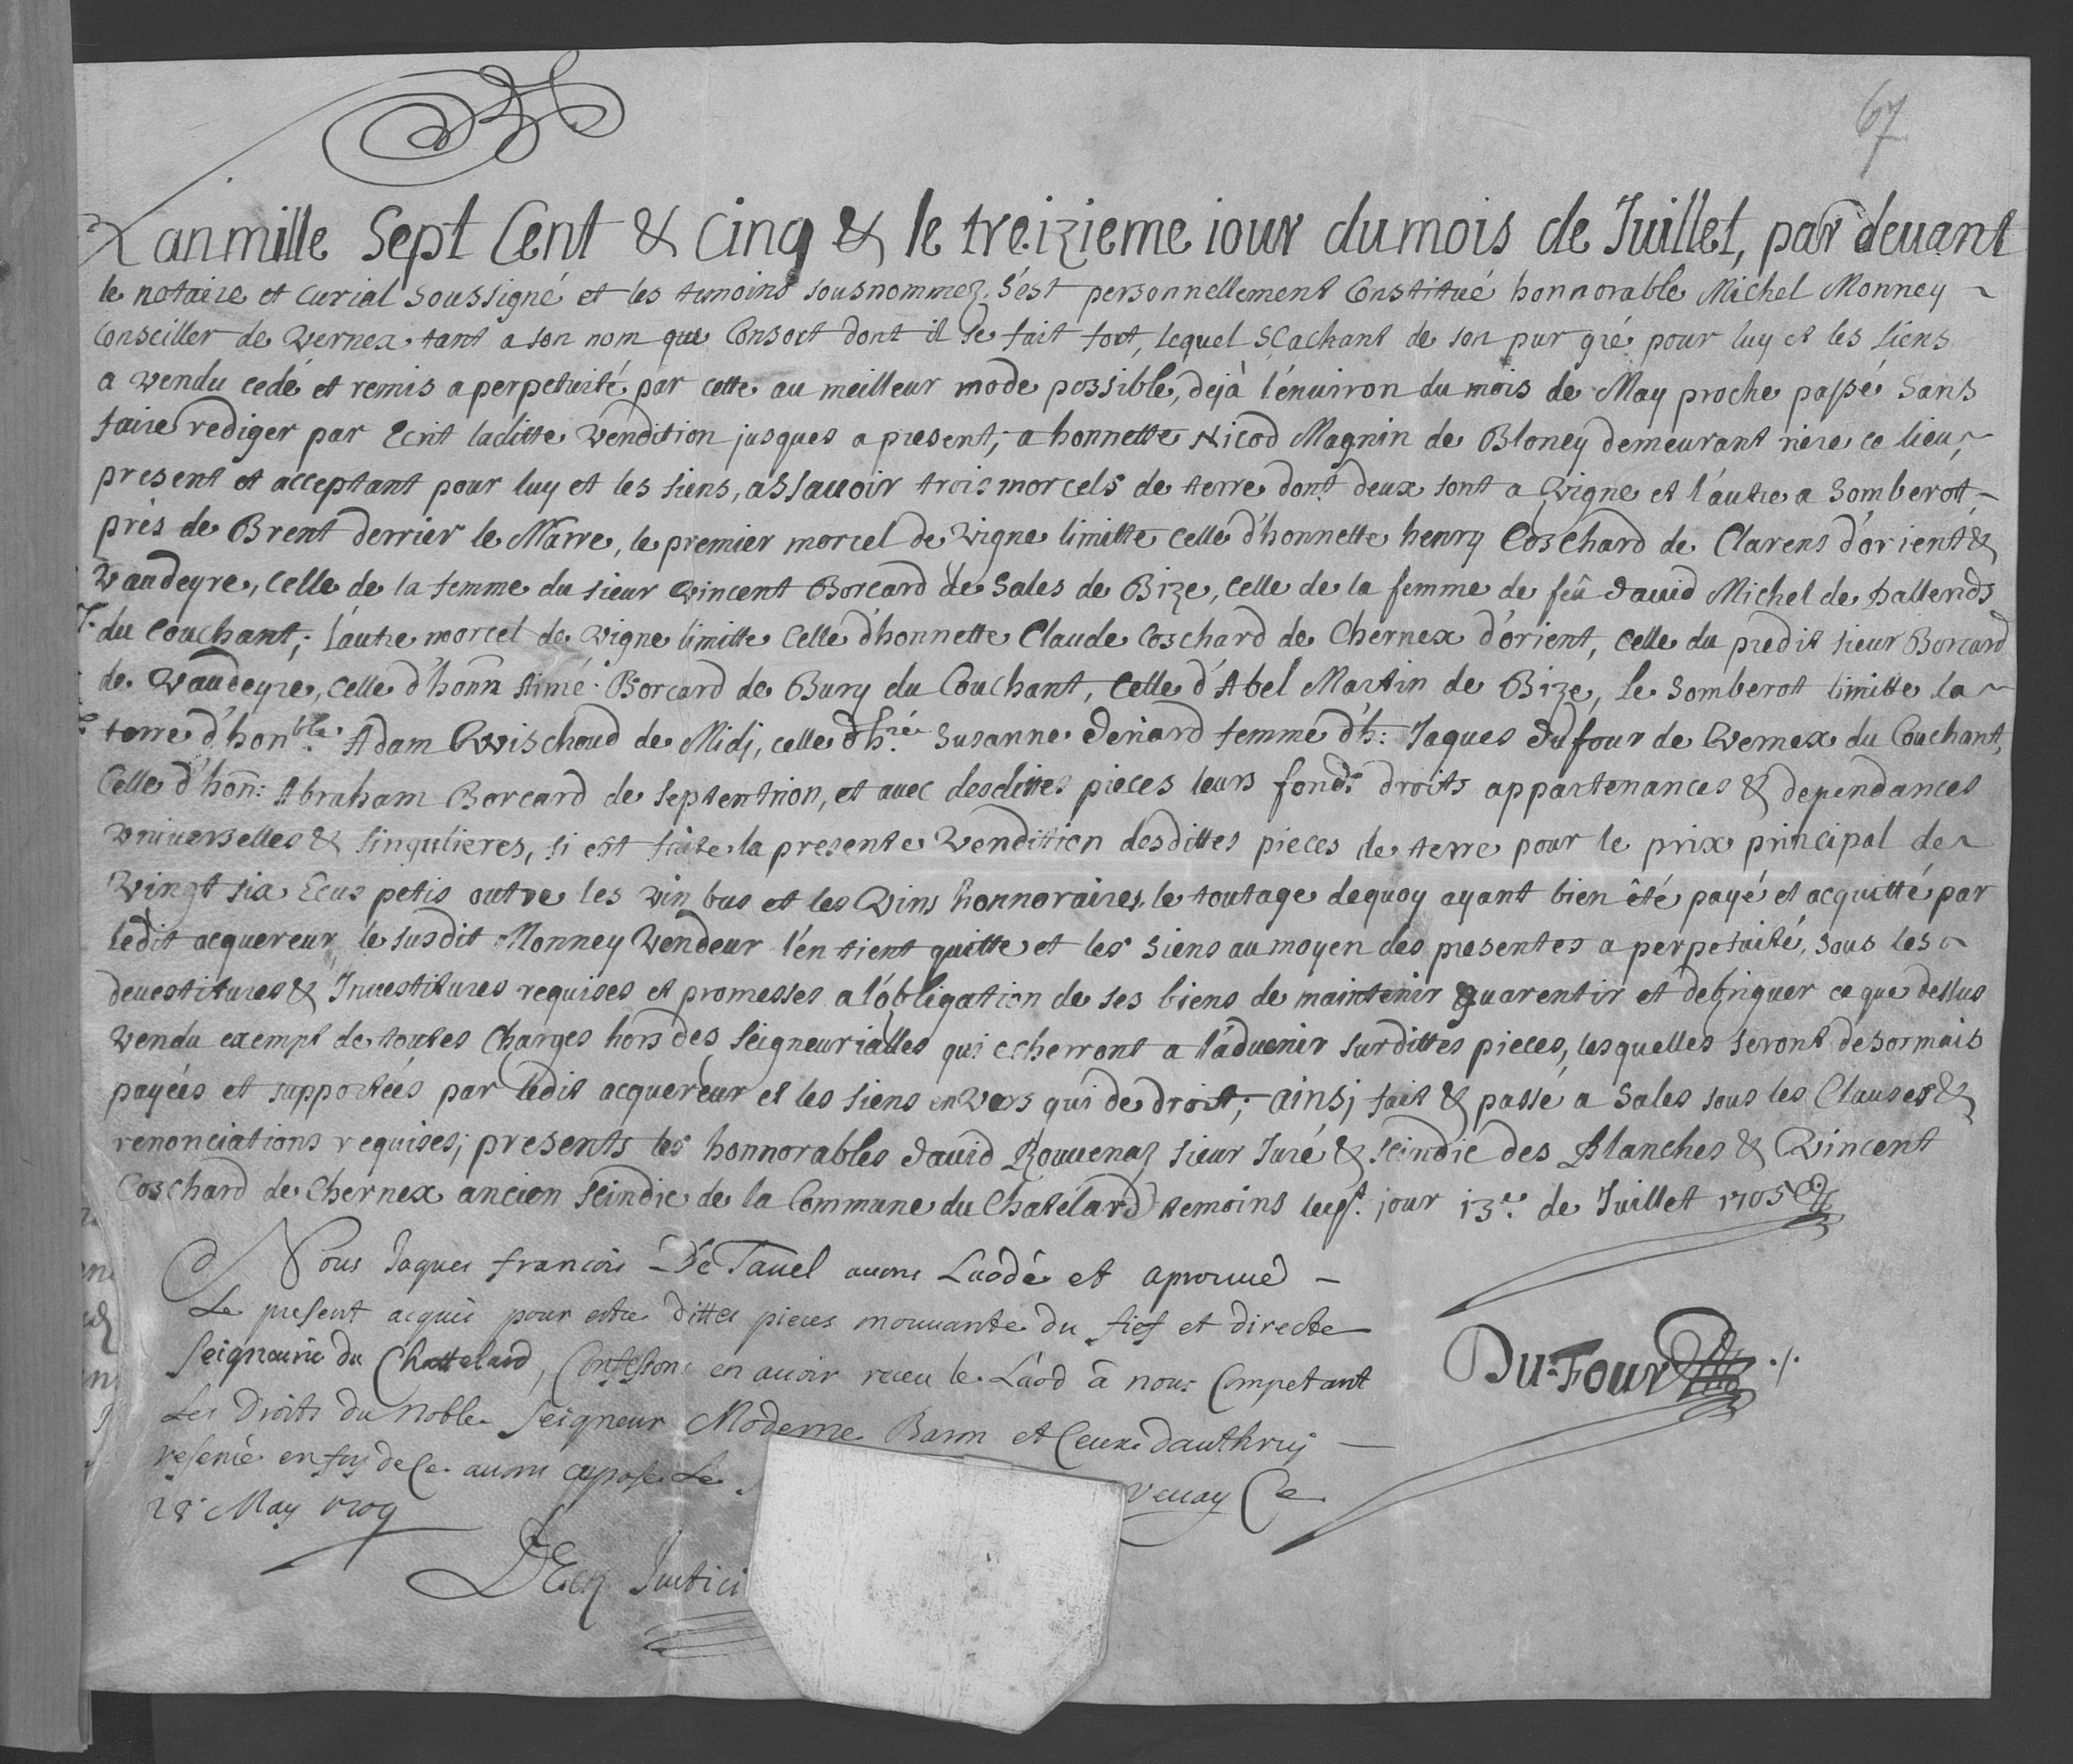 67
L'an mille Sept Cent & Cinq & le treizieme iour du mois de Juillet, par deuant
le notaire et curial soussigné et les temoins sousnommez, s'est personnellement Constitué honnorable Michel Monney
Conseiller de Vernex tant a son nom que Consort dont il se fait fort, lequel sçachant de son pur gré pour luy et les siens
a vendu cedé et remis a perpetuité par cette au meilleur mode possible, dejà l'énuiron du mois de May proche passé sans
faire rediger par Ecrit laditte Vendition jusques a present, a honnette Nicod Magnin de Bloney demeurant riere ce lieu,
present et acceptant pour luy et les siens, assauoir trois morcels de terre dont deux sont a vigne et l'autre a Somberot
près de Brent derrier le Marre, le premier morcel de vigne limitte celle d'honnette henry Coschard de Clarens d'orient &
Vaudeyre, celle de la femme du sieur Vincent Borcard de Sales de Bize, celle de la femme de feû Dauid Michel de Pallends
du Couchant; l'autre morcel de vigne limitte celle d'honnette Claude Coschard de Chernex d'orient, celle du predit sieur Borcard
de Vaudeyre, celle d'honn Aimé Borcard de Bury du Couchant, celle d'Abel Martin de Bize, le Somberot limitte la
terre d'hon.ble Adam Vvischoud de Midj, celle d'h.née Susanne Denard femme d'h: Jaques Dufour de Vernex du Couchant,
Celle d'hon: Abraham Borcard de septentrion, et auec desdittes pieces leurs fonds droits appartenances & dependances
vniuerselles & singulieres, si est faite la presente Vendition desdittes pieces de terre pour le prix principal de
Vingt six Ecus petis outre les vin bus et les Vins honnoraires, le toutage dequoy ayant bien êté payé et acquitté par
ledit acquereur le susdit Monney Vendeur l'en tient quitte et les siens au moyen des presentes a perpetuité, sous les
deuestitures & Inuestitures requises et promesses a l'obligation de ses biens de maintenir guarentir et debriguer ce que dessus
Vendu exempt de toutes Charges hors des seigneurialles qui echerront a l'aduenir surdittes pieces, lesquelles seront desormais
payées et supportées par ledit acquereur et les siens enVers qui de droit; ainsj fait & passé a Sales sous les Clauses &
renonciations requises; presents les honnorables Dauid Rouuenaz sieur Juré & scindic des Planches & Vincent
Coschard de Chernex ancien scindic de la Commune du Chatelard temoins jour 13.e de Juillet 1705
Nous Jaques francois De Tauel auons Laôdé et aprouué
Le present acquis pour estre dittes pieces mouuante du fief et directe
Seigneurie du Chattelard, Confessons en auoir receu le Laod à nous Competant
Les Droits du Noble Seigneur Moderne Baron et Ceux dauthruj
reserué en foy de Ce auons aposé Le Veuay Ce
28 May 1709
Justici
Du-Four